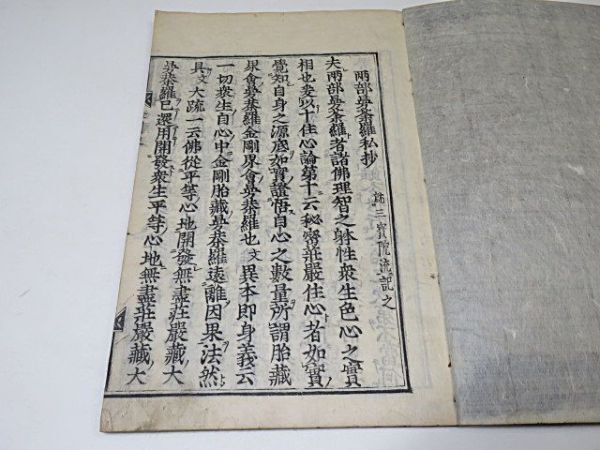 兩部曼荼羅私抄
夫兩部曼荼羅者諸佛理智之躰性衆生色心之實
相也爰以十住心論第十云秘密莊嚴住心者如實
覺知自身之源底如實證悟自心之數量所謂胎藏
界會曼荼羅金剛界會曼荼羅也文異本即身義云
一切衆生自心中金剛胎藏曼荼羅遠離因果法然
具文大疏一云佛從平等心地開發無盡莊嚴藏大
曼荼羅已還用開發衆生平等心地無盡莊嚴藏大